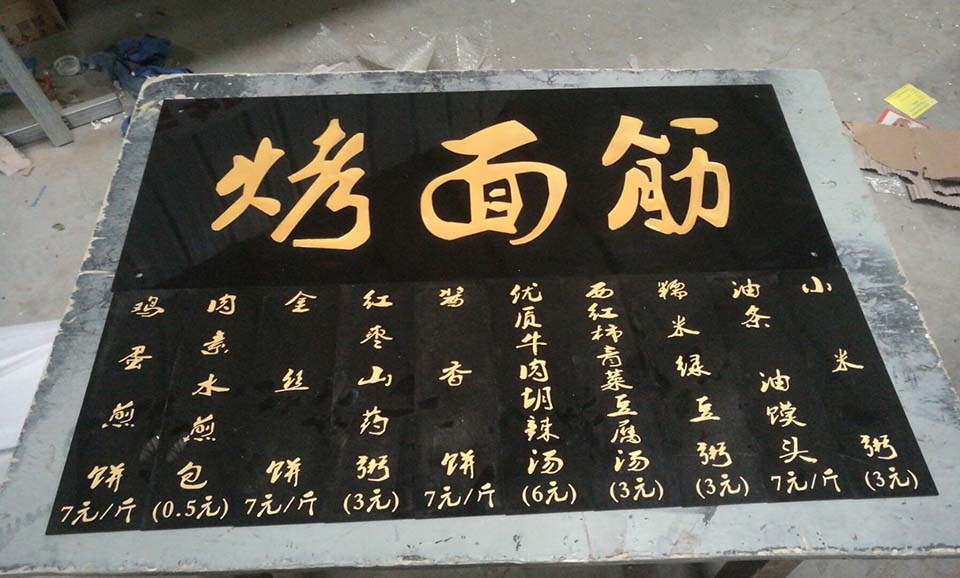 烤面筋
鸡蛋煎饼
7元/斤
肉素水煎包
(0.5元)
金丝饼
7元/斤
红枣山药粥
(3元)
酱香饼
7元/斤
优质牛肉胡辣汤
(6元)
西红柿青菜豆腐汤
(3元)
糯米绿豆粥
(3元)
油条 油馍头
7元/斤
小米粥
(3元)